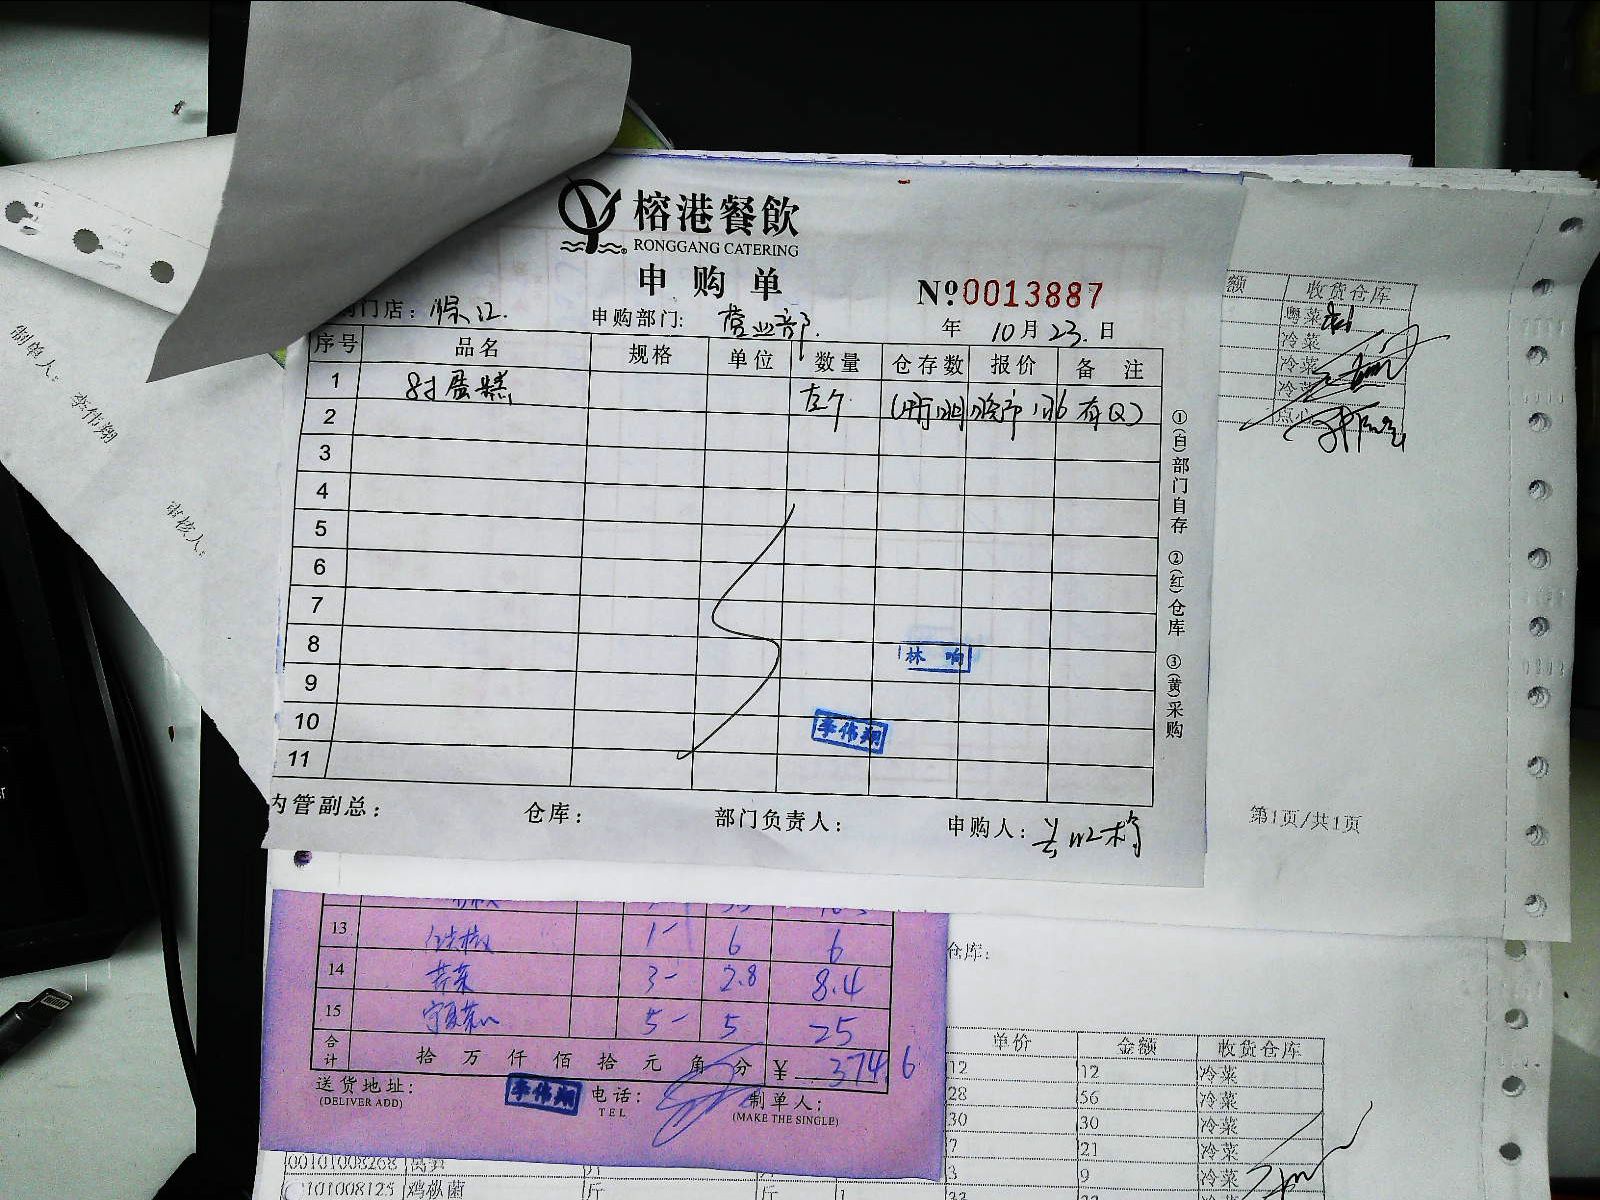 榕港餐飲
RONGGANG CATERING
申购单
№0013887
门店：
申购部门: 营业部.
年 10月23.日
序号 品名 规格 单位 数量 仓存数 报价 备注
1 8寸蛋糕
2
3
4
5
6
7
8
9
10
11
林 响
李伟翔
内管副总：
仓库：
部门负责人：
申购人：
①(白)部门自存 ②(红)仓库 ③(黄)采购
制单人： 李伟翔
审核人：
额 收货仓库
粤菜
冷菜
冷菜
冷菜
点心
第1页/共1页
13 1- 6 6
14 芹菜 3- 2.8 8.4
15 5- 5 25
合计 拾 万 仟 佰 拾 元 角 分 ¥ 374.6
送货地址：
(DELIVER ADD)
李伟翔
电话：
TEL
制单人：
(MAKE THE SINGLE)
仓库：
单价 金额 收货仓库
12 12 冷菜
28 56 冷菜
30 30 冷菜
7 21 冷菜
3 9 冷菜
00101008268
101008125 鸡枞菌 斤 斤 1